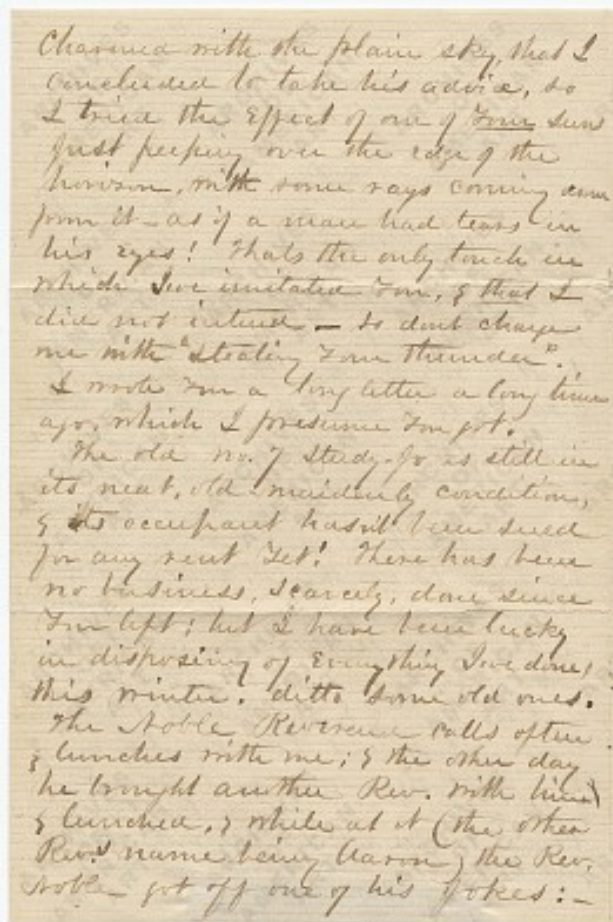 Charmed with the plain sky, that I
concluded to take his advice, so
I tried the Effect of one of Your sun
just peeping over the edge of the
horison, with some rays coming down
from it – as if a man had tears in
his eyes! Thats the only touch in
which Ive imitated You, & that I
did not intend – so dont charge
me with "Stealing Your thunder".
I wrote You a long letter a long time
ago, which I presume You got.
The old no. 7 Study is still in
its neat, old-maidenly condition,
& its occupant hasn't been sued
for any rent Yet! There has been
no business, scarcely, done since
You left; but I have been lucky
in disposing of Everything Ive done,
this winter. ditto some old ones.
The Noble Reverend calls often
& lunches with me; & the other day
he brought another Rev. with him
& lunched, & while at it (the other
Rev.'s name being Aaron) the Rev.
Noble – got off one of his Jokes:–